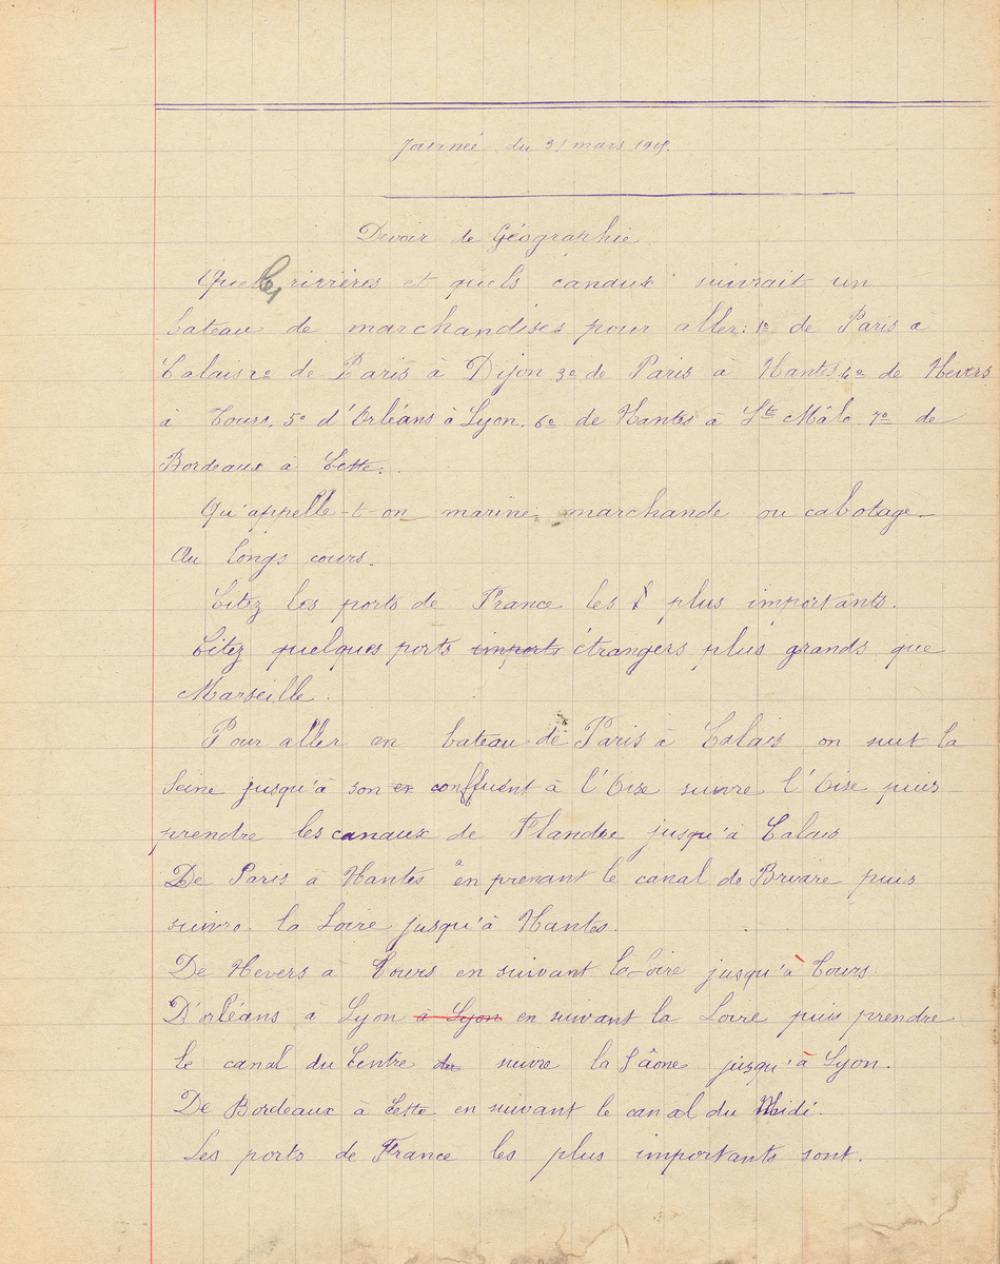 Journée du 31 mars 1919.
Devoir de Géographie
Quelles rivières et quels canaux suivrait un
bateau de marchandises pour aller: 1º de Paris à
Calais 2º de Paris à Dijon 3º de Paris à Nantes 4º de Nevers
à Tours, 5º d'Orléans à Lyon. 6º de Nantes à St Mâlo 7º de
Bordeaux à Cette.
Qu'appelle-t-on marine marchande ou cabotage
Au longs cours.
Citez les ports de France les plus importants.
Citez quelques ports imports étrangers plus grands que
Marseille.
Pour aller en bateau de Paris à Calais on suit la
Seine jusqu'à son confluent à l'Oise suivre l'Oise puis
prendre les canaux de Flandre jusqu'à Calais
De Paris à Nantes en prenant le canal de Briare puis
suivre la Loire jusqu'à Nantes.
De Nevers à Tours en suivant la Loire jusqu'à Tours.
D'orléans à Lyon à Lyon en suivant la Loire puis prendre
le canal du Centre du suivre la Sâone jusqu'à Lyon.
De Bordeaux à Cette en suivant le canal du Midi.
Les ports de France les plus importants sont.